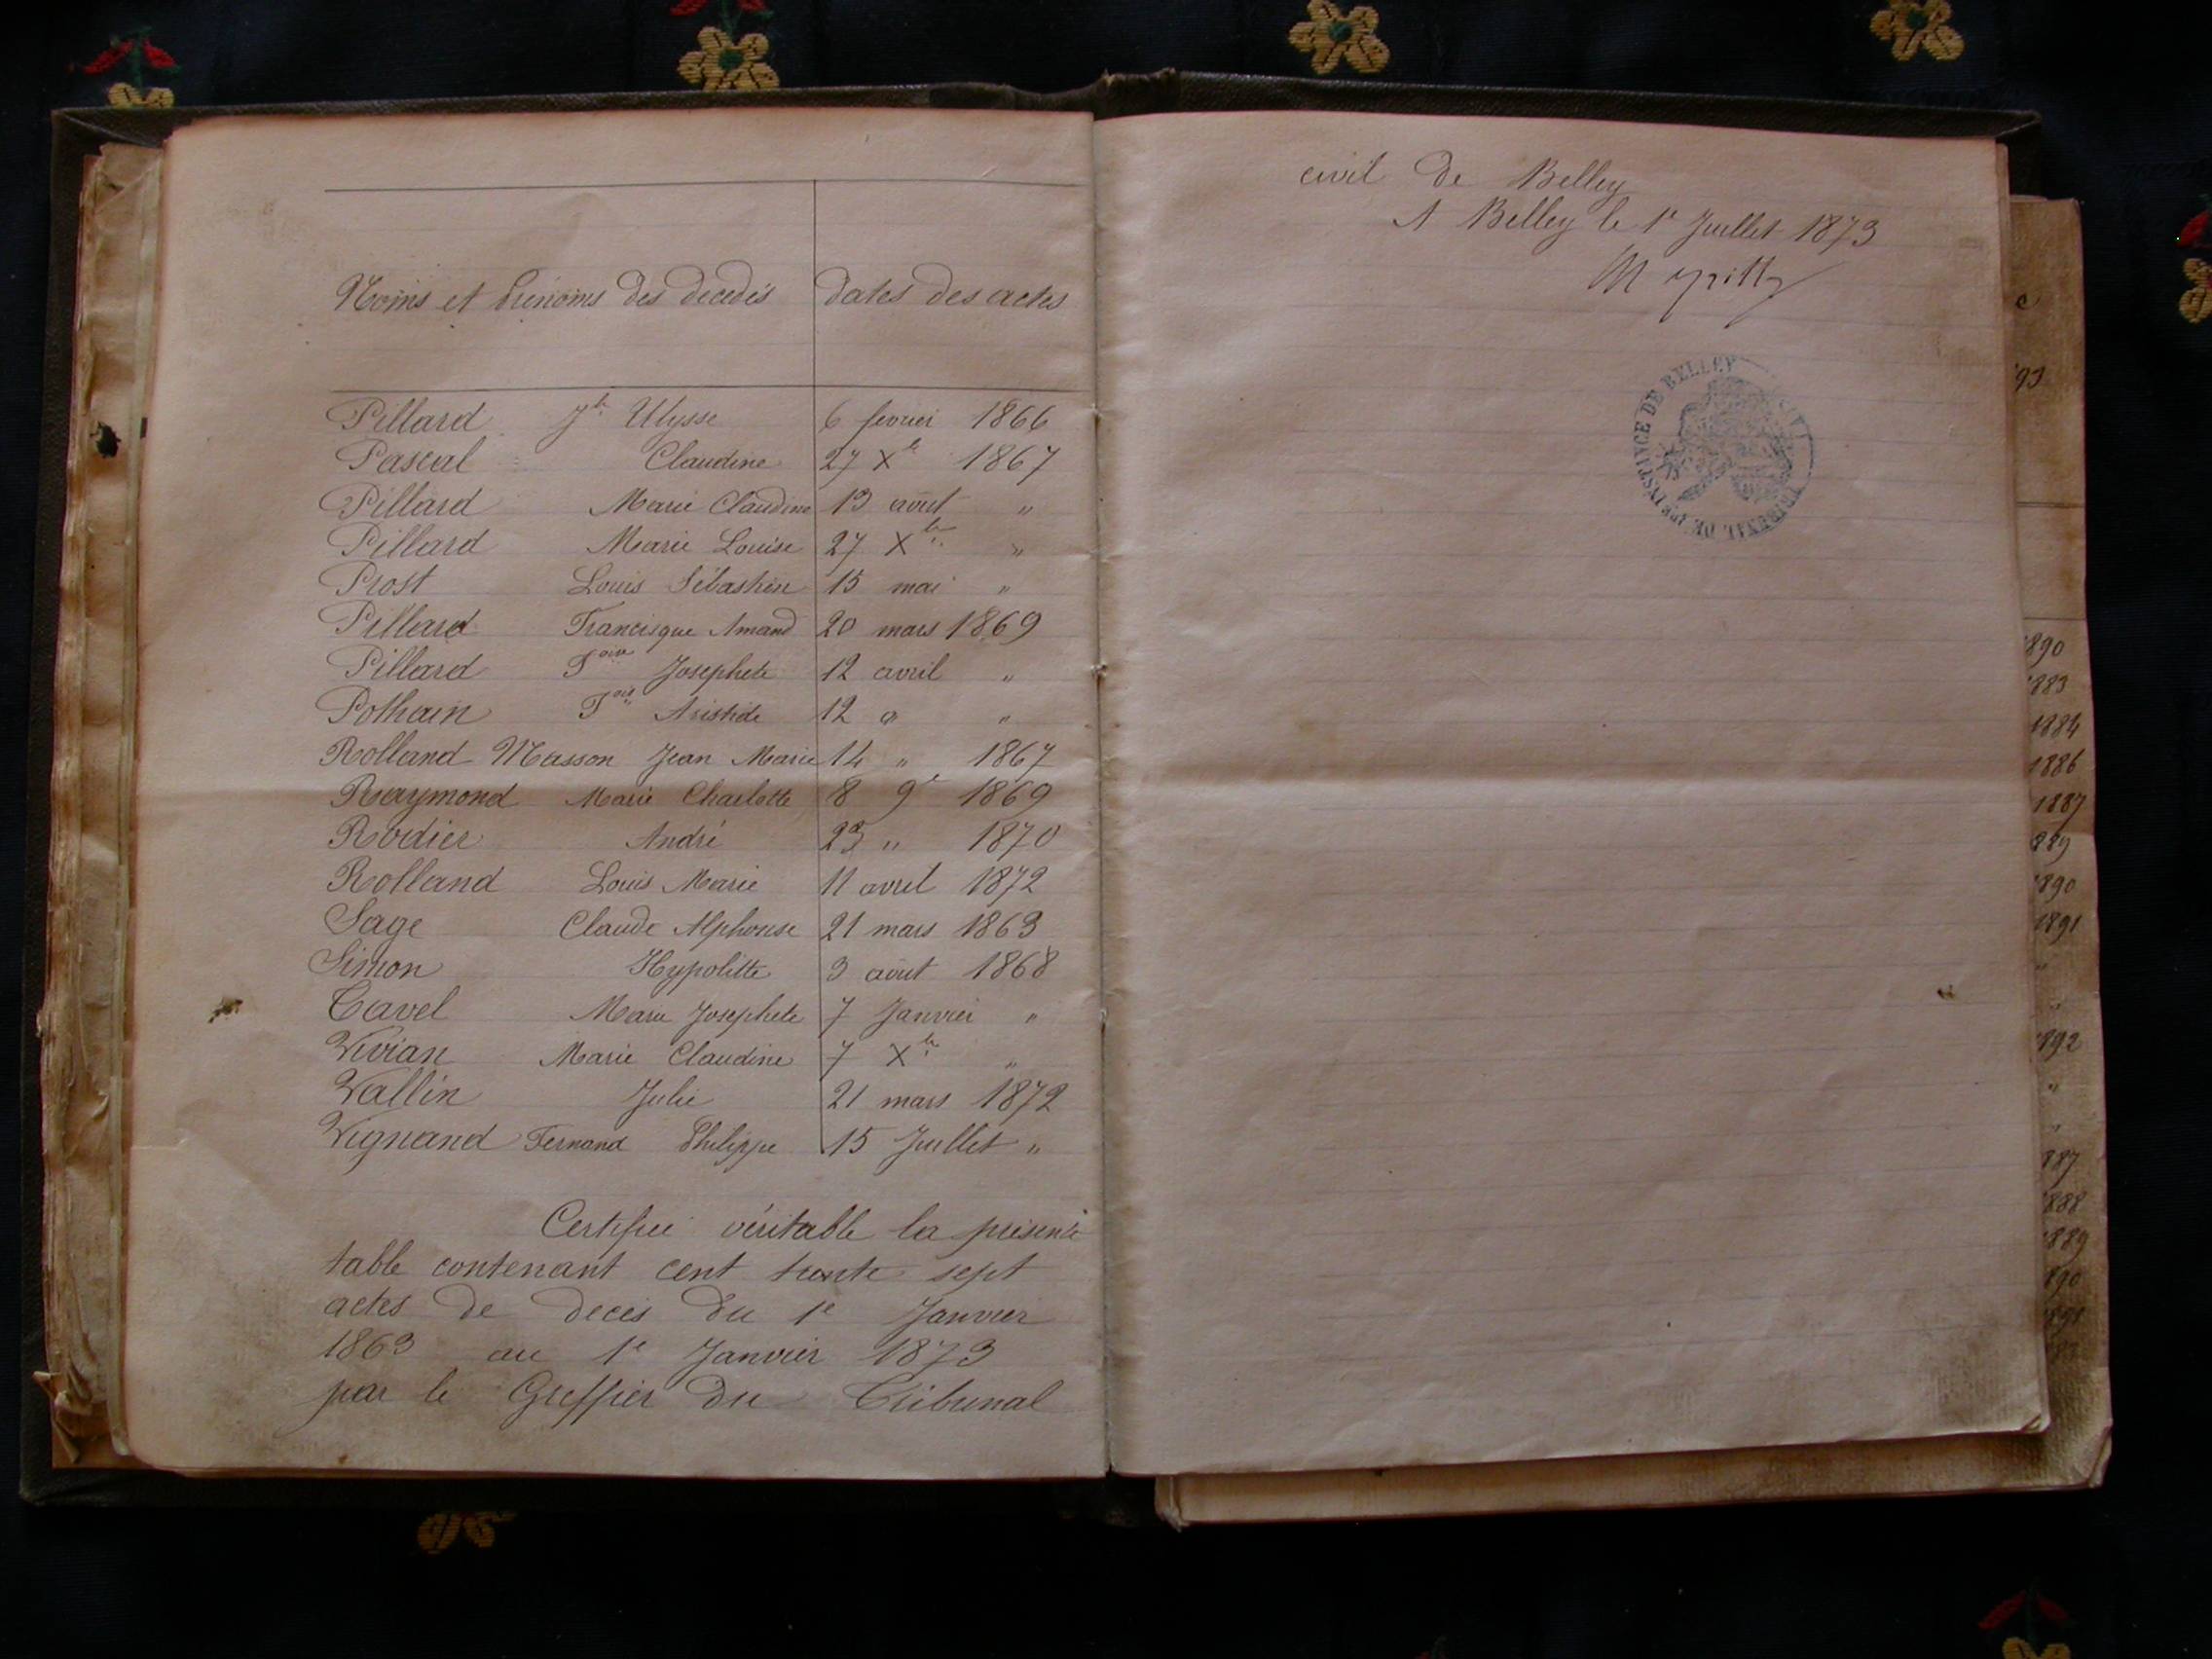 Noms et Prénoms des décédés dates des actes
Pillard Jh Ulysse 6 fevrier 1866
Pascal Claudine 27 Xbre 1867
Pillard Marie Claudine 13 août "
Pillard Marie Louise 27 Xbre "
Prost Louis Sébastien 15 mai "
Pillard Francisque Amand 20 mars 1869
Pillard Josephete 12 avril "
Pothain Fois Aristide 12 " "
Rolland Masson Jean Marie 14 " 1867
Raymond Marie Charlotte 8 9e 1869
Rodier André 23 " 1870
Rolland Louis Marie 11 avril 1872
Sage Claude Alphonse 21 mars 1863
Simon Hypolitte 3 août 1868
Tavel Marie Josephete 7 Janvier "
Vivian Marie Claudine 7 Xbre "
Vallin Julie 21 mars 1872
Vignand Fernand Philippe 15 Juillet "
Certifié véritable la présente
table contenant cent trente sept
actes de décès du 1e Janvier
1863 au 1e Janvier 1873
par le Greffier du Tribunal
civil de Belley
A Belley le 1e Juillet 1873
TRIBUNAL DE 1ERE INSTANCE DE BELLEY
93
1890
1883
1884
1886
1887
889
1890
1891
"
"
1892
"
"
887
888
889
890
891